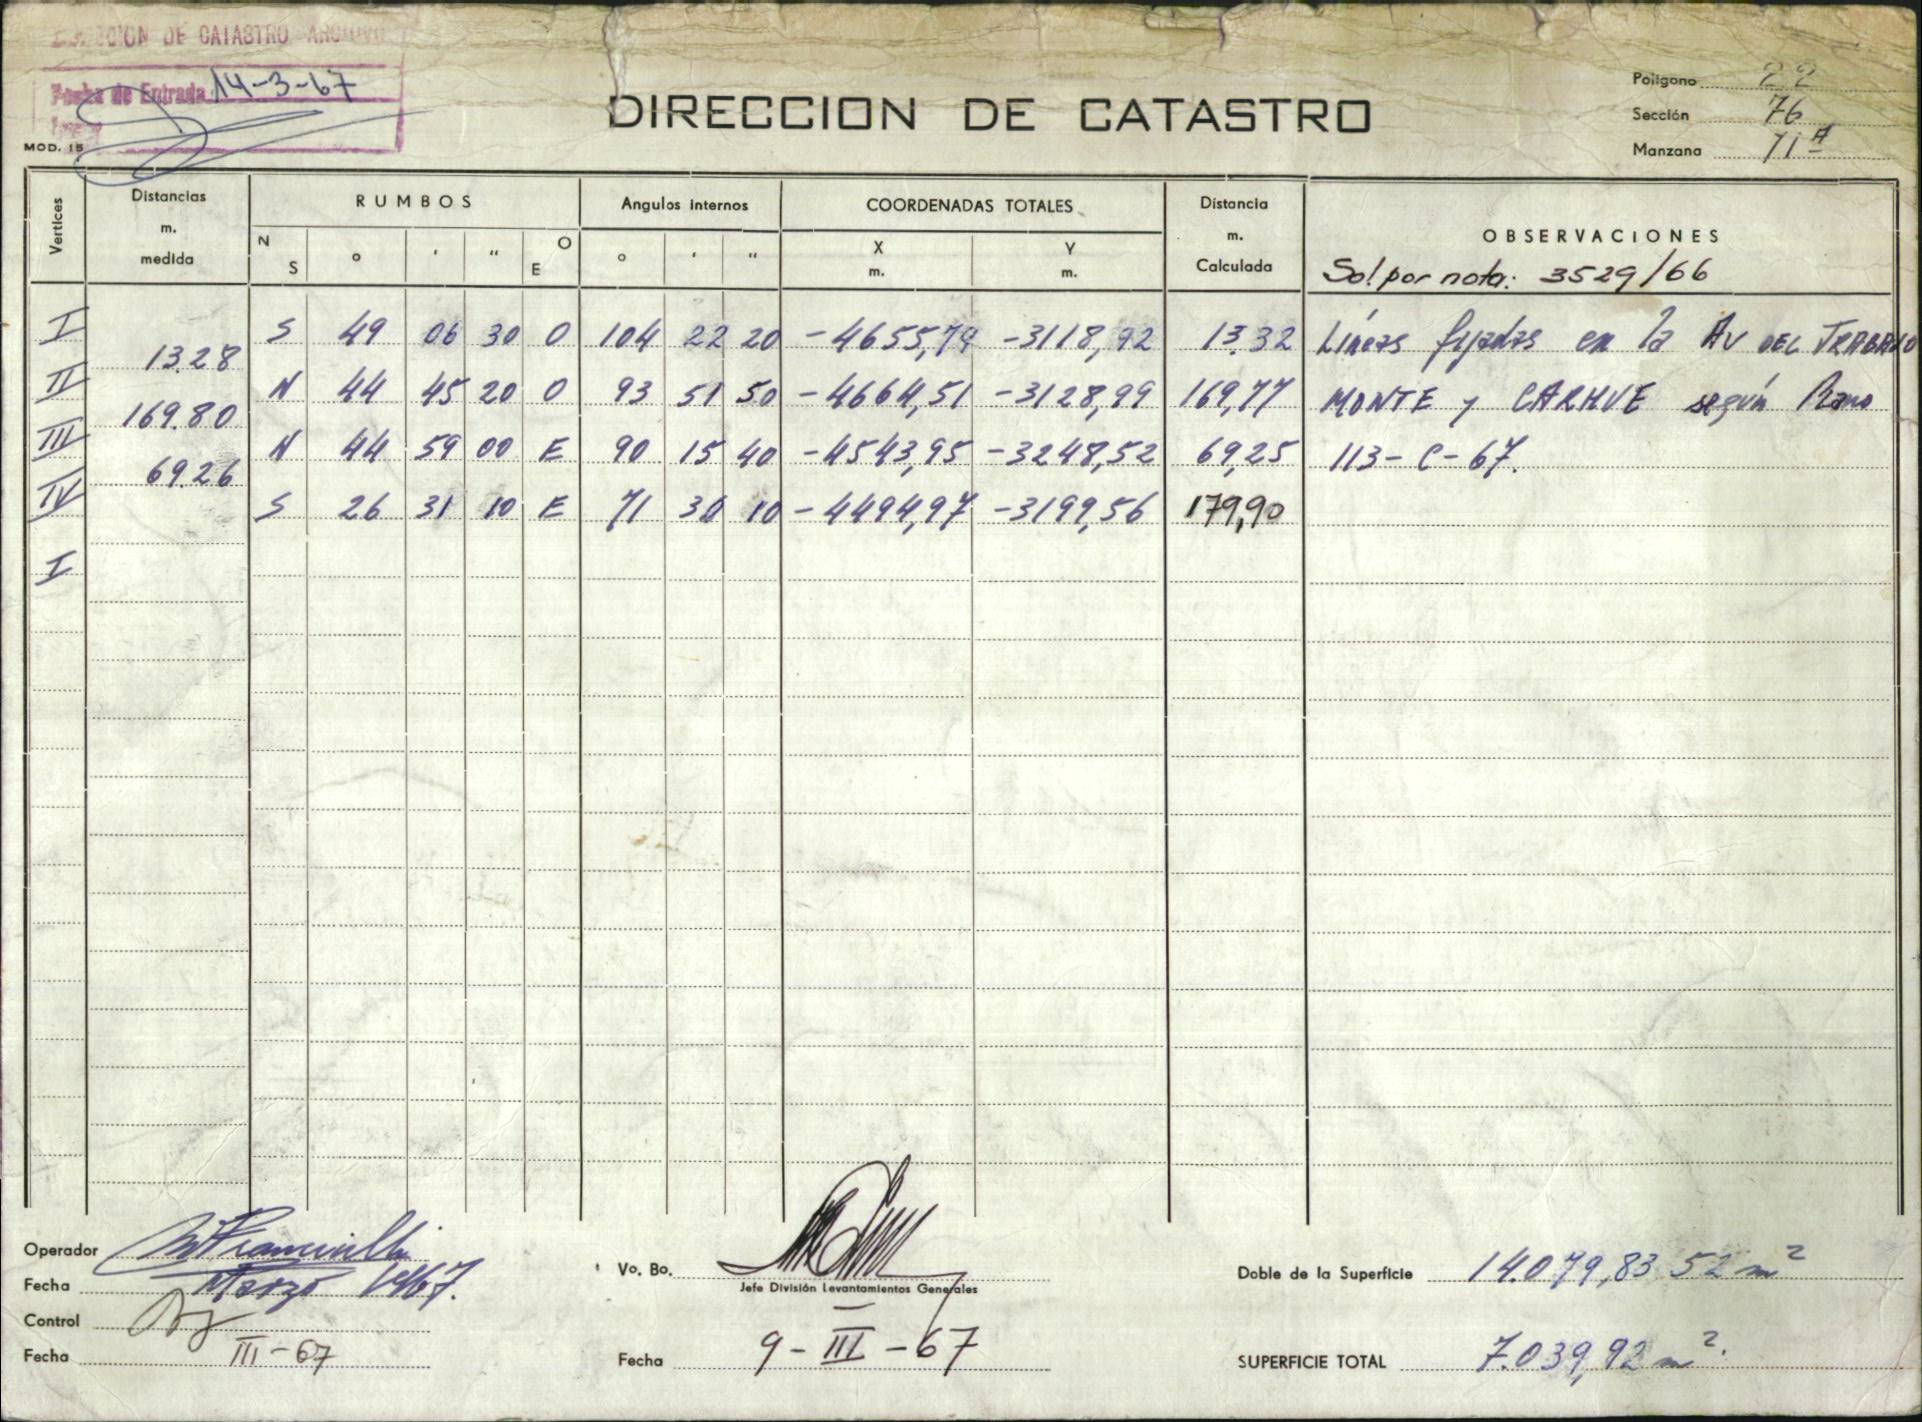 DIRECCION DE CATASTRO ARCHIVO
Fecha de Entrada 14-3-67
MOD. 15
DIRECCION DE CATASTRO
Polígono 22
Sección 76
Manzana 71 A
Vertices Distancias m. medida RUMBOS Angulos internos COORDENADAS TOTALES Distancia m. Calculada OBSERVACIONES
N S ° ' " O E ° ' " X m. Y m.
Sol por nota: 3529/66
I S 49 06 30 O 104 22 20 -4655,79 -3118,92 13.32 Líneas fijadas en la AV DEL TRABAJO
13.28
II N 44 45 20 O 93 51 50 -4664,51 -3128,99 169,77 MONTE y CARHUE según Plano
169.80
III N 44 59 00 E 90 15 40 -4543,95 -3248,52 69,25 113-C-67.
69.26
IV S 26 31 10 E 71 30 10 -4494,97 -3199,56 179,90
I
Operador
Fecha Marzo 1967.
Control
Fecha III-67
Vo. Bo.
Jefe División Levantamientos Generales
Fecha 9-III-67
Doble de la Superficie 14.079,83 52 m²
SUPERFICIE TOTAL 7.039,92 m².